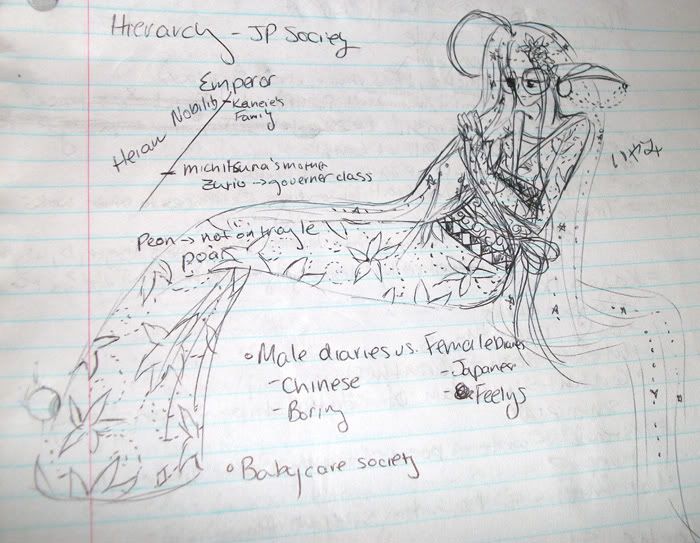 Hierarchy - JP Society
Emperor
Heian Nobility - Kaneie's
Family
- michitsuna's mother
Zuriō → governer class
Peon → not on tragle
poar
• Male diaries vs. Female Diaries
- Chinese
- Boring
- Japanese
- Feelys
• Babycare society